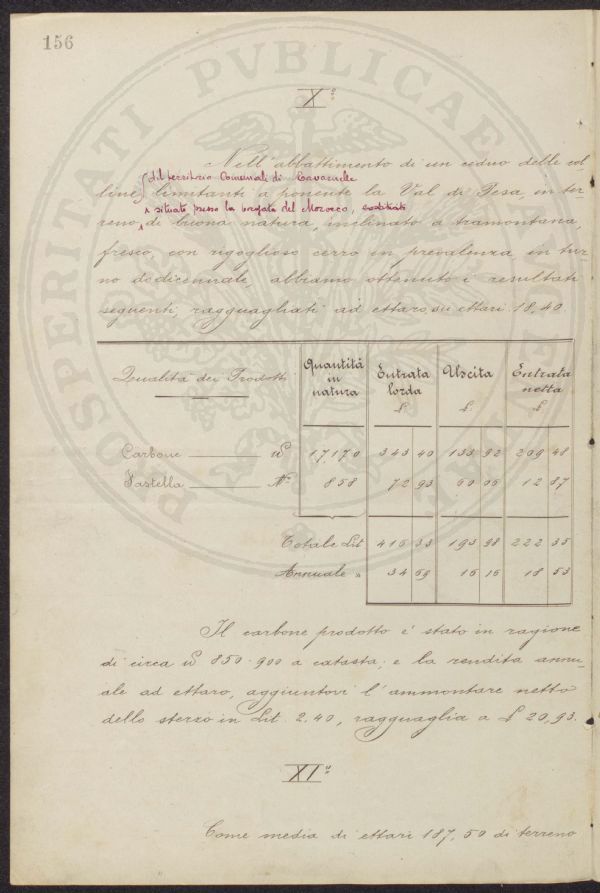 156
PROSPERITATI PVBLICAE
X°
Nell'abbattimento di un ceduo delle col-
del territorio Comunale di
line limitanti a ponente la Val di Pesa, in ter-
e situato presso la borgata del Morocco,
reno di buona natura, inclinato a tramontana,
fresco, con rigoglioso cerro in prevalenza, in tur-
no dodicennale, abbiamo ottenuto i resultati
seguenti, ragguagliati ad ettaro, su ettari 18,40.
Qualità dei Prodotti Quantità in natura Entrata lorda £ Uscita £ Entrata netta £
Carbone 17170 343 40 133 92 209 48
Fastella N° 858 72 93 60 06 12 87
Totale Lit 416 33 193 98 222 35
Annuale " 34 69 16 16 18 53
Il carbone prodotto è stato in ragione
di circa 850-900 a catasta; e la rendita annu-
ale ad ettaro, aggiuntovi l'ammontare netto
dello sterzo in Lit. 2.40, ragguaglia a £ 20,93.
XI°
Come media di ettari 187,50 di terreno